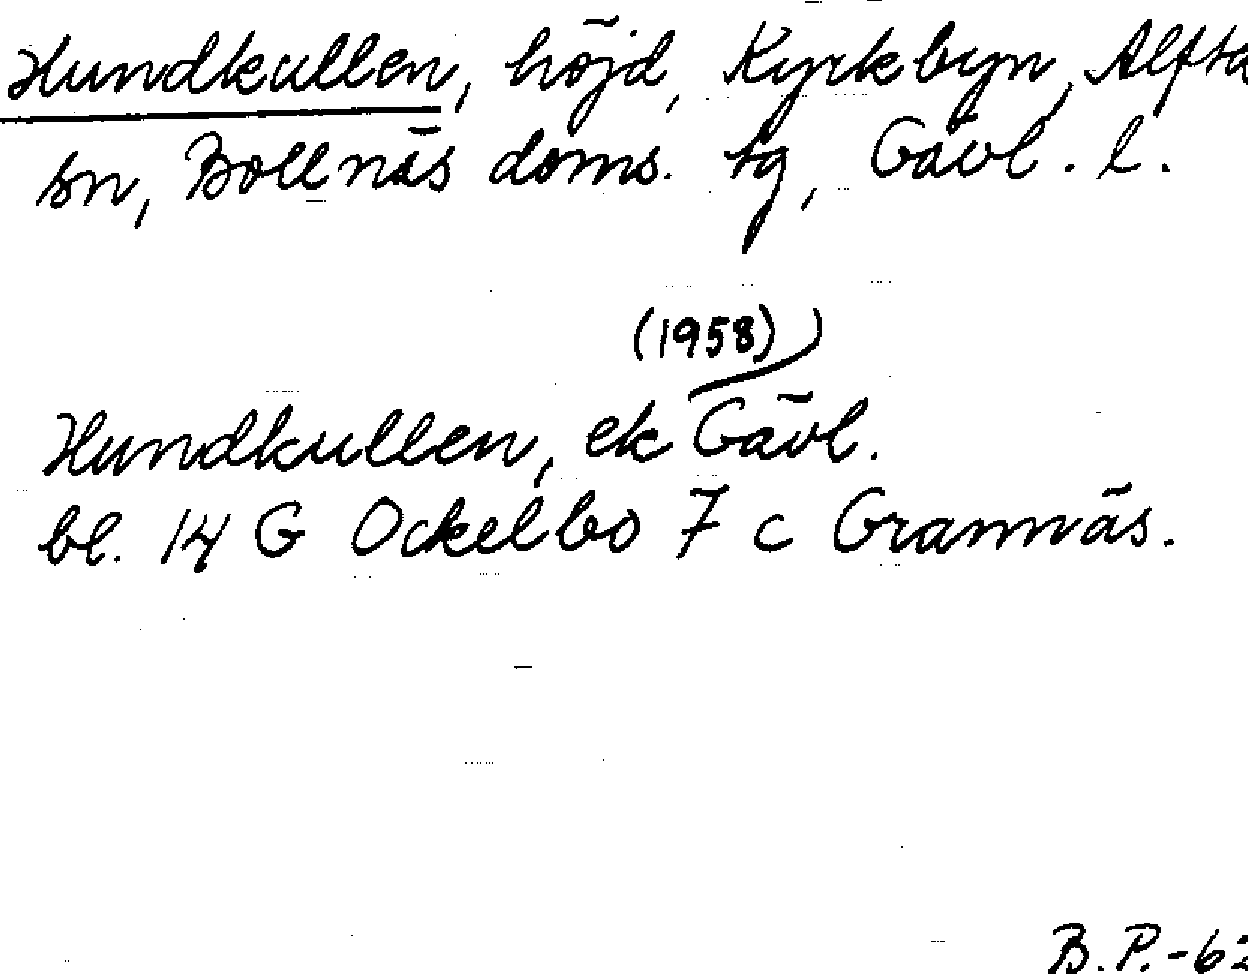 Hundkullen, höjd, Kyrkbyn, Alfta
sn, Bollnäs doms. tg, Gävl. l.
(1958))
Hundkullen, ek Gävl.
bl. 14 G Ockelbo 7 c Grannäs.
B.P.-62